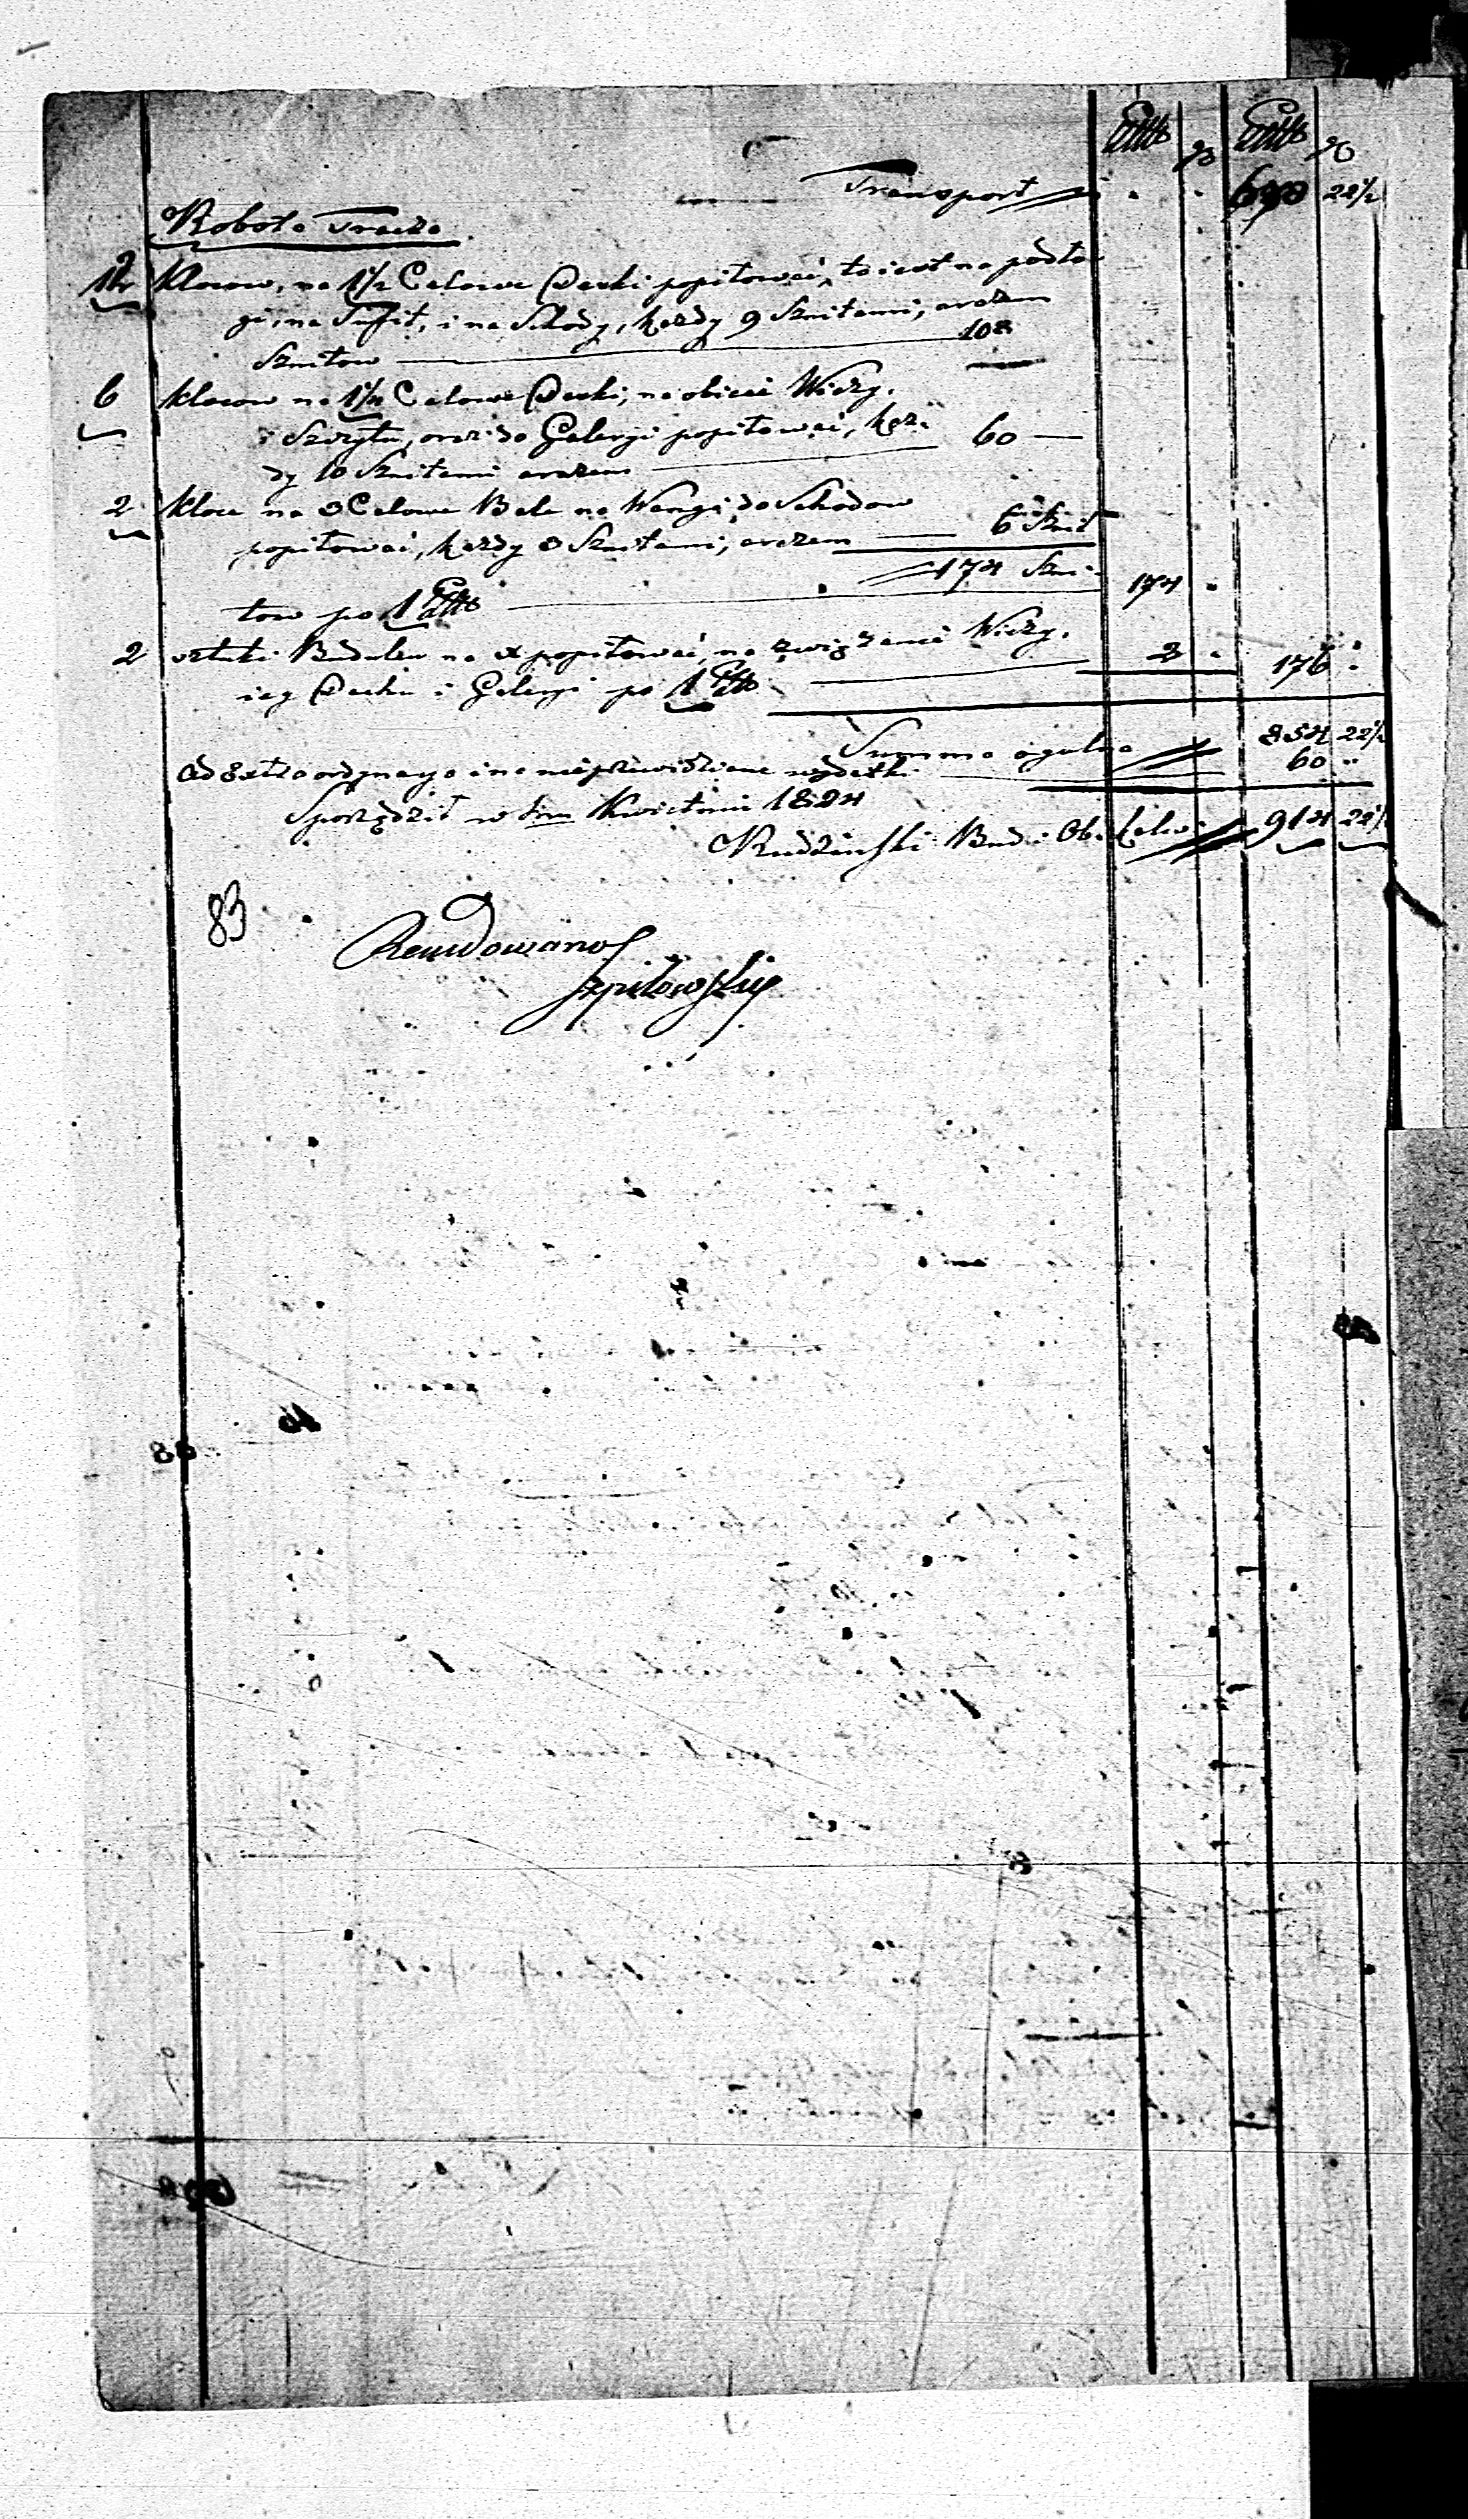 Zł. gr Zł. gr
Transport " " 678 22½
Robota Tracka
12 Klocow, na 1½ Calowe Decki popiłować, to iest na podło
gi, na Sufit, i na Schody, każdy 9 Sznitami, arazem
Sznitow 108
6 Klocow na 1¼ Calowe Decki, na obicie Wieży,
i Szczytu, oraz do Galeryi popiłować, każ:
dy 10 Sznitami arazem 60
2 Kloce na 3 Calowe Bale na Wangi do Schodow
popiłować, każdy 3 Sznitami, arazem 6 Sznit
174 Szni:
tow po 1 Zł. 174 "
2 sztuki Budulcu na popiłować, na związanie Wieży,
iey Dachu i Galeryi po 1 Zł. 2 " 176 "
Summa ogulna 854 22½
ad Extraordynarya i na nieprzewidziane wydatki 60 "
Sporządził w Kwietniu 1824
Rudziński Bud: Ob: 914 22½
83
Rewidowano
Szpilowski